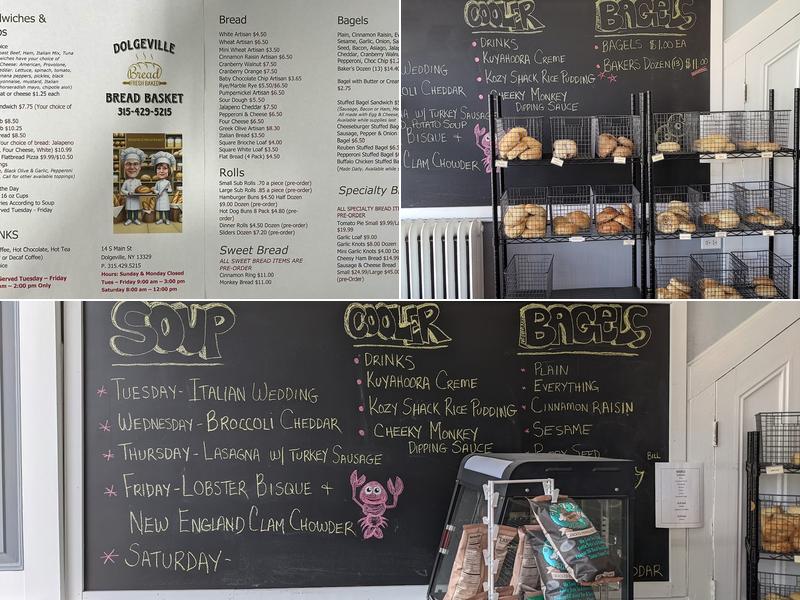 dwiches &
Beef, Ham, Italian Mix, Tuna
wiches have your choice of
Cheese: American, Provolone,
Cheddar. Lettuce, spinach, tomato,
banana peppers, pickles, black
mayonnaise, mustard, Italian
horseradish mayo, chipotle aioli)
at or cheese $1.25 each
ndwich $7.75 (Your choice of
$8.50
b $10.25
ead $8.50
our choice of bread: Jalapeno
Four Cheese, White) $10.99
Flatbread Pizza $9.99/$10.50
Black Olive & Garlic, Pepperoni
Call for other available toppings)
the Day
16 oz Cups
ries According to Soup
rved Tuesday - Friday
NKS
ffee, Hot Chocolate, Hot Tea
or Decaf Coffee)
Served Tuesday – Friday
am – 2:00 pm Only
DOLGEVILLE
Bread
FRESH BAKED
BREAD BASKET
315-429-5215
14 S Main St
Dolgeville, NY 13329
P. 315.429.5215
Hours: Sunday & Monday Closed
Tues – Friday 9:00 am – 3:00 pm
Saturday 8:00 am – 12:00 pm
Bread
White Artisan $4.50
Wheat Artisan $6.50
Mini Wheat Artisan $3.50
Cinnamon Raisin Artisan $6.50
Cranberry Walnut $7.50
Cranberry Orange $7.50
Baby Chocolate Chip Artisan $3.65
Rye/Marble Rye $5.50/$6.50
Pumpernickel Artisan $6.50
Sour Dough $5.50
Jalapeno Cheddar $7.50
Pepperoni & Cheese $6.50
Four Cheese $6.50
Greek Olive Artisan $8.30
Italian Bread $3.50
Square Brioche Loaf $4.00
Square White Loaf $3.50
Flat Bread (4 Pack) $4.50
Rolls
Small Sub Rolls .70 a piece (pre-order)
Large Sub Rolls .85 a piece (pre-order)
Hamburger Buns $4.50 Half Dozen
$9.00 Dozen (pre-order)
Hot Dog Buns 8 Pack $4.80 (pre-
order)
Dinner Rolls $4.50 Dozen (pre-order)
Sliders Dozen $7.20 (pre-order)
Sweet Bread
ALL SWEET BREAD ITEMS ARE
PRE-ORDER
Cinnamon Ring $11.00
Monkey Bread $11.00
Bagels
Plain, Cinnamon Raisin, Ev
Sesame, Garlic, Onion, Sa
Seed, Bacon, Asiago, Jala
Cheddar, Cranberry, Four
Pepperoni, Choc Chip $1.2
Baker's Dozen (13) $14.4
Bagel with Butter or Cream
$2.75
Stuffed Bagel Sandwich $5
(Sausage, Bacon or Ham,
All made with Egg & Cheese
Available while supplies last
Cheeseburger Stuffed Bag
Sausage, Pepper & Onion
Bagel $6.50
Reuben Stuffed Bagel $6.5
Pepperoni Stuffed Bagel $
Buffalo Chicken Stuffed
(Made Daily. Available while
Specialty B
ALL SPECIALTY BREAD IT
PRE-ORDER
Tomato Pie Small $9.99/L
$19.99
Garlic Loaf $9.00
Garlic Knots $8.00 Dozen
Mini Garlic Knots $4.00 Do
Cheesy Ham Bread $14.99
Sausage & Cheese Bread
Small $24.99/Large $45.00
(pre-order)
COOLER
DRINKS
KUYAHOORA CREME
KOZY SHACK RICE PUDDING
CHEEKY MONKEY
DIPPING SAUCE
BAGELS
BAGELS $1.00 EA
BAKERS DOZEN (13) $11.00
WEDDING
OLI CHEDDAR
A W/ TURKEY SAUSAGE
POTATO SOUP
BISQUE +
CLAM CHOWDER
SOUP
TUESDAY - ITALIAN WEDDING
WEDNESDAY - BROCCOLI CHEDDAR
THURSDAY - LASAGNA W/ TURKEY SAUSAGE
FRIDAY - LOBSTER BISQUE +
NEW ENGLAND CLAM CHOWDER
SATURDAY -
COOLER
DRINKS
KUYAHOORA CREME
KOZY SHACK RICE PUDDING
CHEEKY MONKEY
DIPPING SAUCE
BAGELS
PLAIN
EVERYTHING
CINNAMON RAISIN
SESAME
POPPY SEED
BILL
DDAR